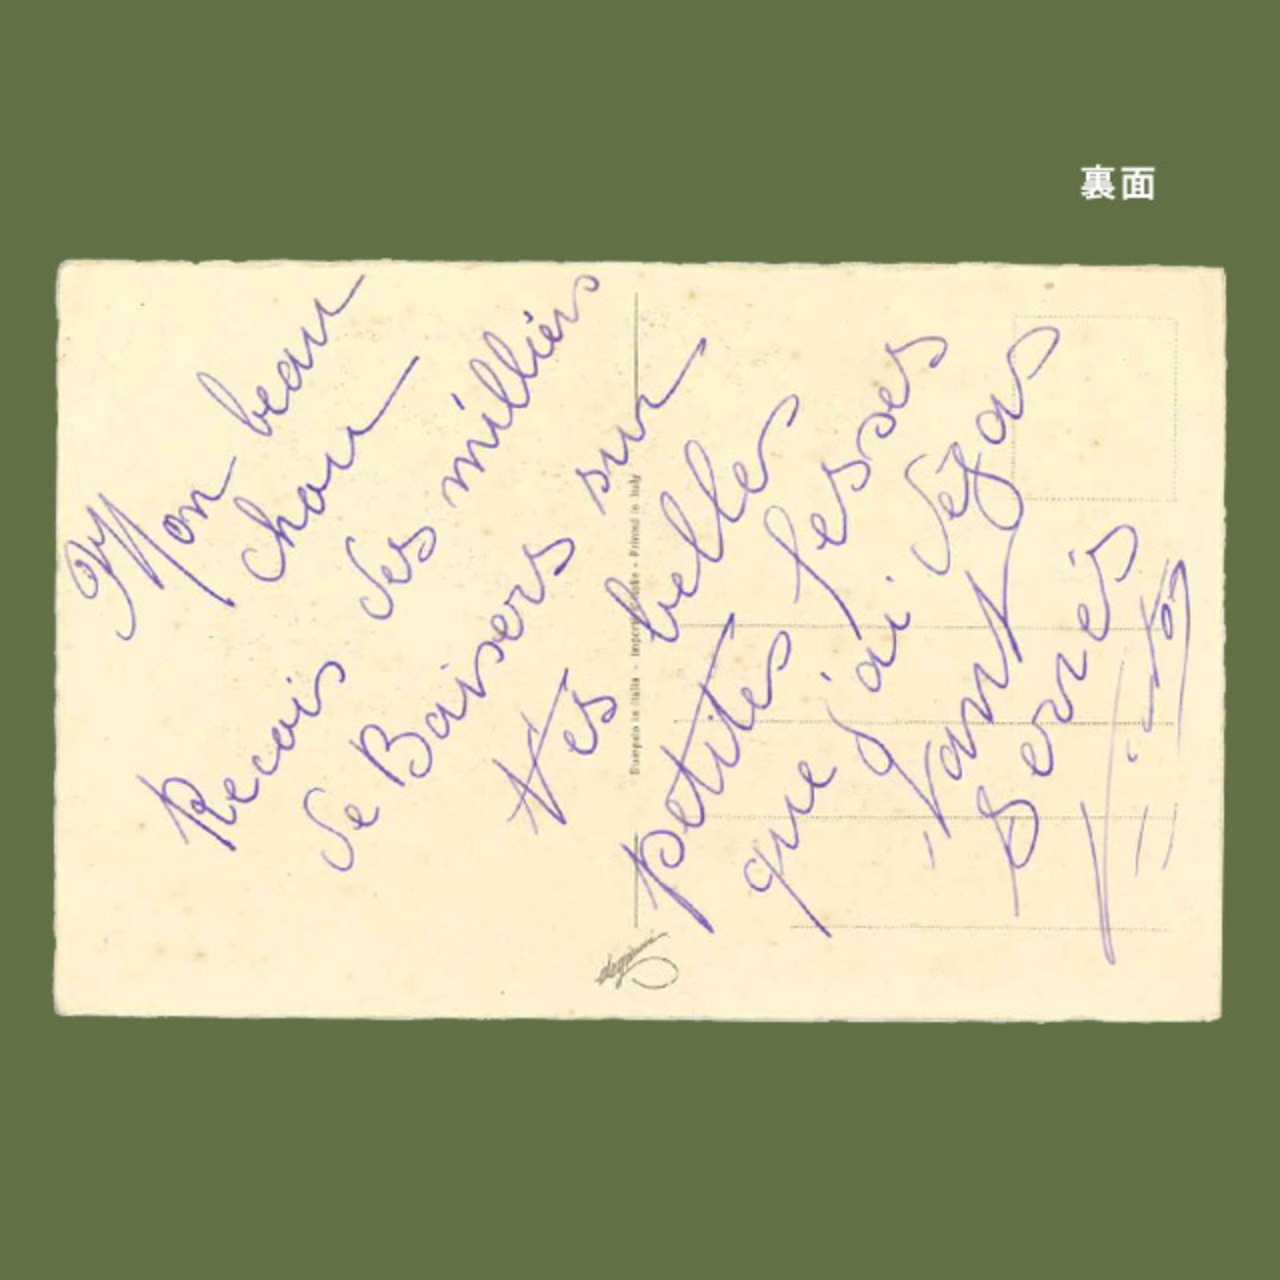 裏面
Mon beau
chou
Recois des milliers
de Baisers sur
tes belles
petites fesses
que j'ai déjas
tant
serrés
Stampato in Italia - Printed in Italy